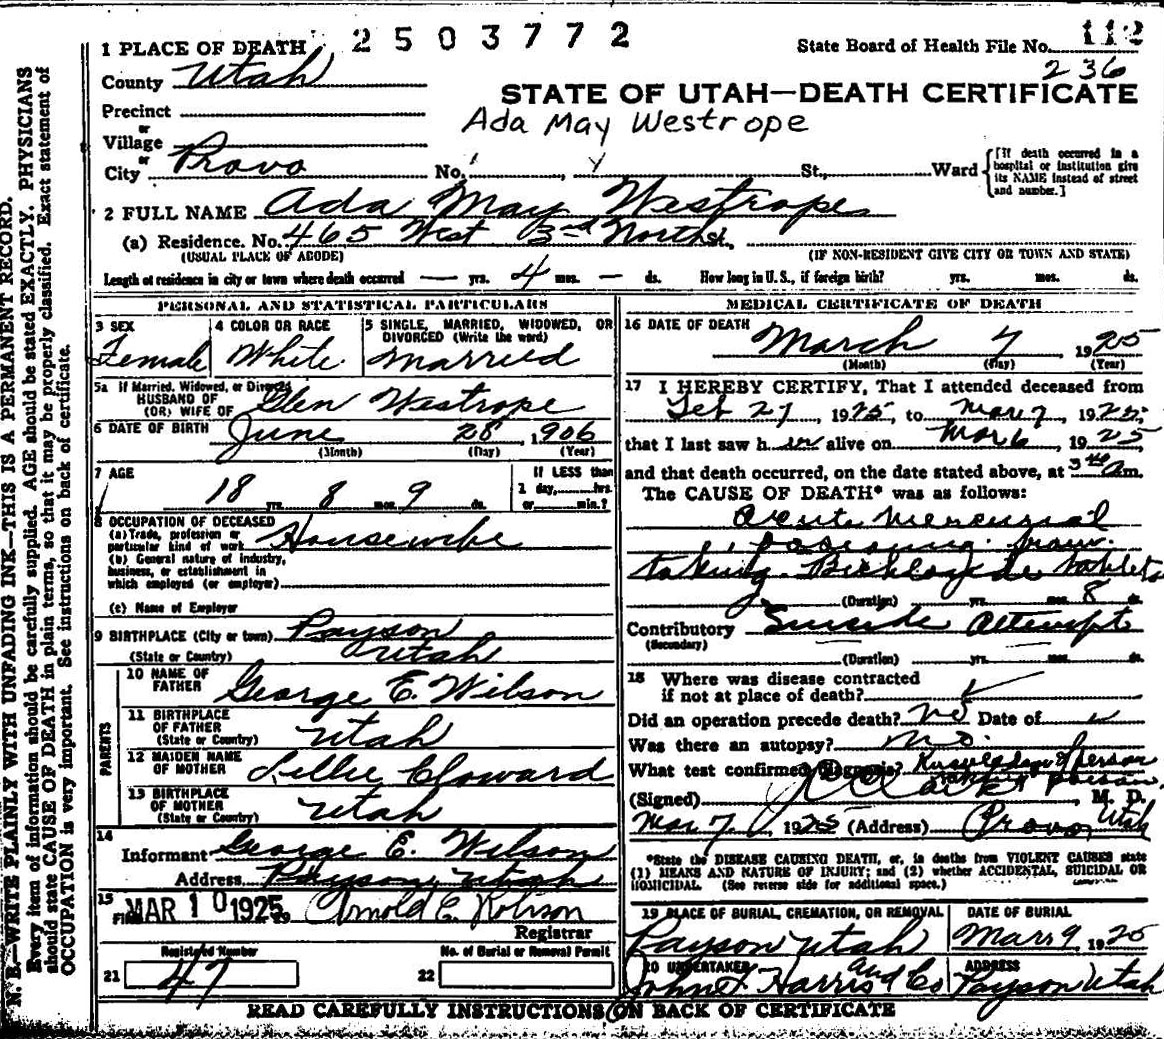 2503772
1 PLACE OF DEATH
State Board of Health File No. 112
236
County Utah
STATE OF UTAH—DEATH CERTIFICATE
Precinct
Ada May Westrope
or
Village
or
City Provo No. St., Ward
[If death occurred in a hospital or institution give its NAME instead of street and number.]
2 FULL NAME Ada May Westrope
(a) Residence. No. 465 West 3rd North St.
(USUAL PLACE OF ABODE) (IF NON-RESIDENT GIVE CITY OR TOWN AND STATE)
Length of residence in city or town where death occurred — yrs. 4 mos. — ds. How long in U.S., if foreign birth? yrs. mos. ds.
PERSONAL AND STATISTICAL PARTICULARS
3 SEX
Female
4 COLOR OR RACE
White
5 SINGLE, MARRIED, WIDOWED, OR DIVORCED (Write the word)
Married
5a If Married, Widowed, or Divorced
HUSBAND OF
(OR) WIFE OF Glen Westrope
6 DATE OF BIRTH June 28, 1906
(Month) (Day) (Year)
7 AGE
18 yrs. 8 mos. 9 ds.
If LESS than
1 day, hrs.
or min.?
8 OCCUPATION OF DECEASED
(a) Trade, profession or
particular kind of work Housewife
(b) General nature of industry,
business, or establishment in
which employed (or employer)
(c) Name of Employer
9 BIRTHPLACE (City or town) Payson
(State or Country) Utah
PARENTS
10 NAME OF
FATHER George E. Wilson
11 BIRTHPLACE
OF FATHER
(State or Country) Utah
12 MAIDEN NAME
OF MOTHER Lillie Cloward
13 BIRTHPLACE
OF MOTHER
(State or Country) Utah
14
Informant George E. Wilson
Address Payson, Utah
15
MAR 10 1925 Arnold E. Robison
Registrar
Registered Number
21 47
No. of Burial or Removal Permit
22
MEDICAL CERTIFICATE OF DEATH
16 DATE OF DEATH
March 7 1925
(Month) (Day) (Year)
17 I HEREBY CERTIFY, That I attended deceased from
Feb 27, 1925, to Mar 7, 1925,
that I last saw her alive on Mar 6, 1925
and that death occurred, on the date stated above, at 3 am.
The CAUSE OF DEATH* was as follows:
Acute Mercurial
poisoning from
taking Bichloride tablets
(Duration) yrs. mos. 8 ds.
Contributory Suicide Attempt
(Secondary)
(Duration) yrs. mos. ds.
18 Where was disease contracted
if not at place of death?
Did an operation precede death? no Date of
Was there an autopsy? no.
What test confirmed diagnosis? Knowledge of person
taking poison
(Signed) Clark, M. D.
Mar 7, 1925 (Address) Provo Utah
*State the DISEASE CAUSING DEATH, or, in deaths from VIOLENT CAUSES state
(1) MEANS AND NATURE OF INJURY; and (2) whether ACCIDENTAL, SUICIDAL OR
HOMICIDAL. (See reverse side for additional space.)
19 PLACE OF BURIAL, CREMATION, OR REMOVAL
Payson Utah
DATE OF BURIAL
Mar. 9, 1925
20 UNDERTAKER
John F Harris and Co
ADDRESS
Payson Utah
READ CAREFULLY INSTRUCTIONS ON BACK OF CERTIFICATE
N. B.—WRITE PLAINLY WITH UNFADING INK—THIS IS A PERMANENT RECORD.
Every item of information should be carefully supplied. AGE should be stated EXACTLY. PHYSICIANS
should state CAUSE OF DEATH in plain terms, so that it may be properly classified. Exact statement of
OCCUPATION is very important. See instructions on back of certificate.